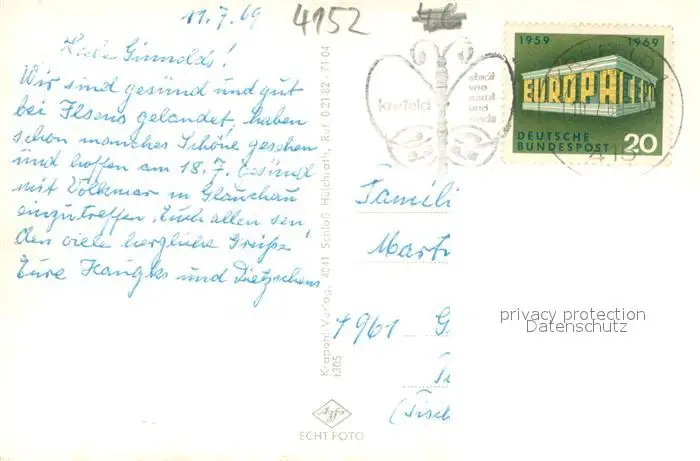 11.7.69
4152
Liebe Grinnolds!
Wir sind gesund und gut
bei Ilsens gelandet, haben
schon manches Schöne gesehen
und hoffen am 18.7. gesund
mit Volkmar in Glauchau
einzutreffen. Euch allen sen
den viele herzliche Grüße
Eure Haugks und Dietzschens
Krapohl-Verlag, 4041 Schloß Hülchrath, Ruf 0 21 82 - 71 04
1305
Agfa
ECHT FOTO
krefeld
stadt
von
samt
und
seide
1959 1969
EUROPA CEPT
DEUTSCHE
BUNDESPOST 20
415
Famili
Mart
1961 G
(Fisch
privacy protection
Datenschutz